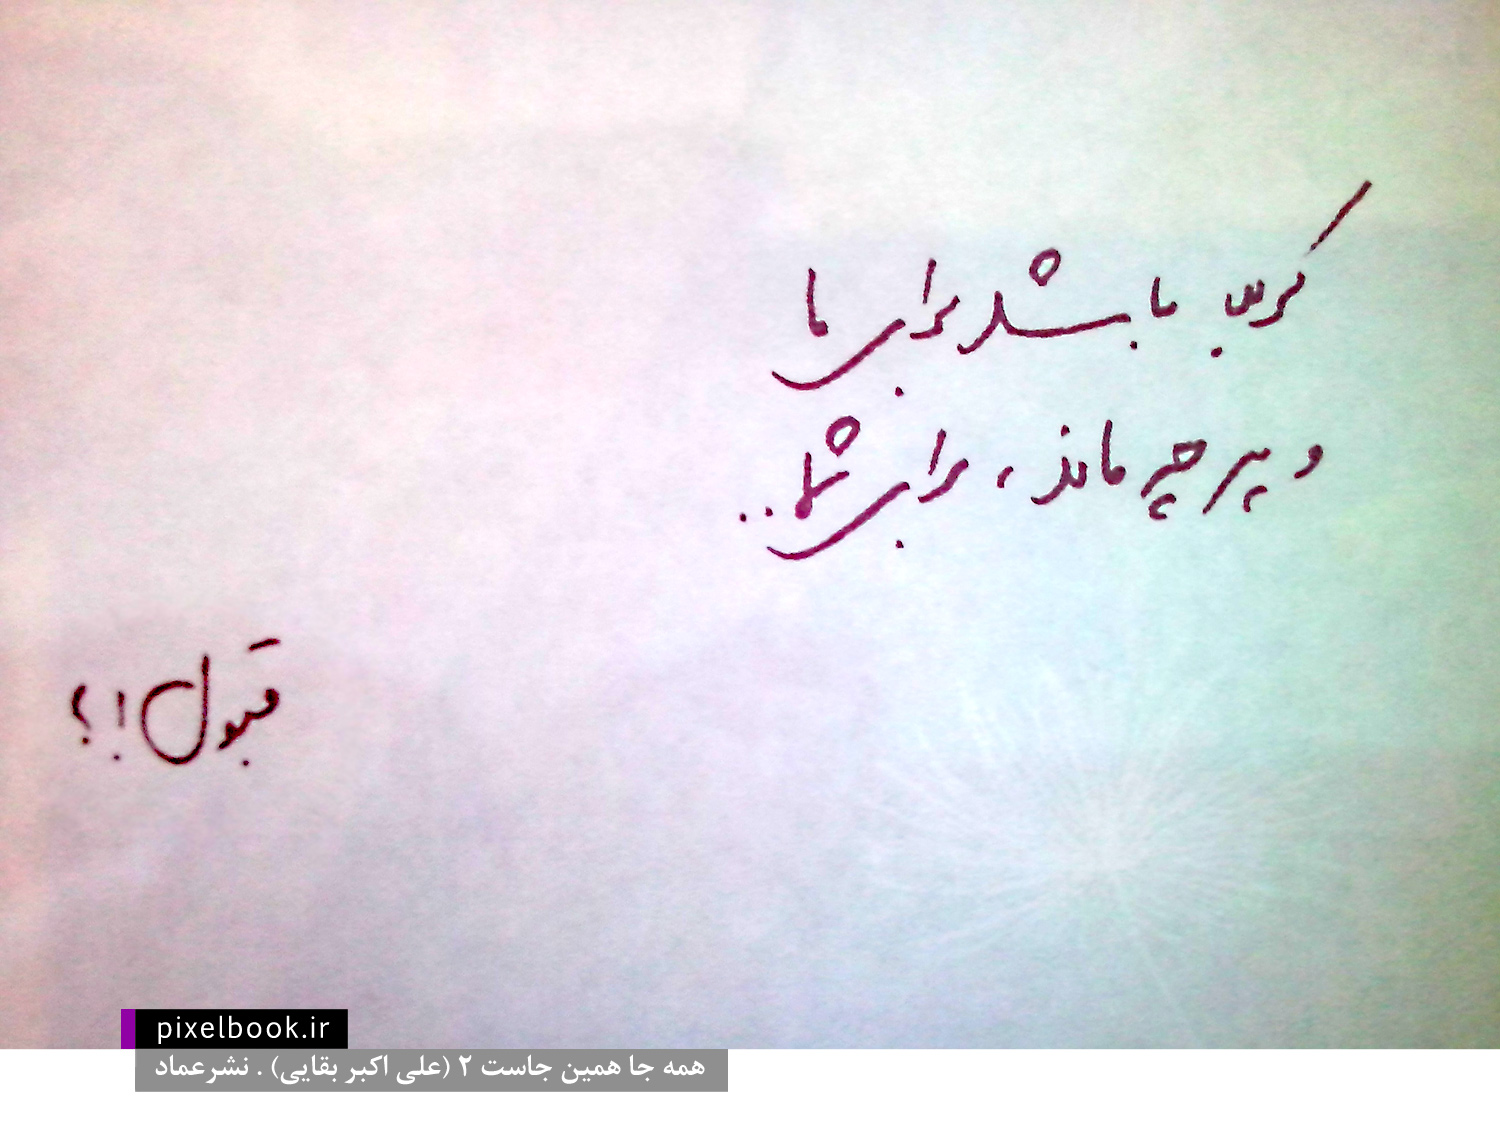 کربلا باشد برای ما
و هر چه ماند ، برای شما..
قبول!؟
pixelbook.ir
همه جا همین جاست ۲ (علی اکبر بقایی) . نشرعماد